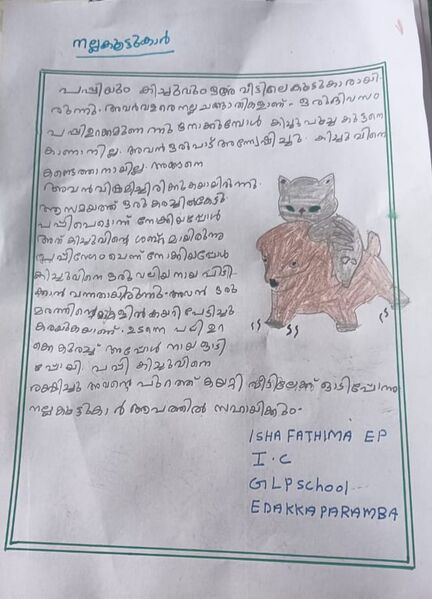 നല്ലകൂട്ടുകാർ
പപ്പിയും കിച്ചുവും ഒരു വീട്ടിലെ കൂട്ടുകാരായി
രുന്നു. അവർ വളരെ നല്ല ചങ്ങാതികളാണ്. ഒരു ദിവസം
പപ്പി ഉറക്കമുണ൪ന്നു നോക്കുമ്പോൾ കിച്ചു പൂച്ച കുട്ടനെ
കാണാനില്ല. അവൻ ഒരുപാട് അന്വേഷിച്ചു. കിച്ചുവിനെ
കണ്ടെത്താനായില്ല. അങ്ങനെ
അവൻ വിഷമിച്ചിരിക്കുകയായിരുന്നു.
ആ സമയത്ത് ഒരു കരച്ചിൽ കേട്ടു
പപ്പി പെട്ടെന്ന് നോക്കിയപ്പോൾ
അത് കിച്ചുവിന്റെ ശബ്ദമായിരുന്നു
ചെന്ന് നോക്കിയപ്പോൾ
കിച്ചുവിനെ ഒരു വലിയ നായ പിടി-
ക്കാൻ വന്നതായിരുന്നു. അവൻ ഒരു
മരത്തിന്റെ മുകളിൽ കയറി പേടിച്ചു
കരയുകയാണ്. ഉടനെ പപ്പി ഉറ
ക്കെ കുരച്ചു അപ്പോൾ നായ ഓടി
പ്പോയി. പപ്പി കിച്ചുവിനെ
രക്ഷിച്ചു അവന്റെ പുറത്ത് കയറ്റി വീട്ടിലേക്ക് ഓടിപ്പോന്നു
നല്ല കൂട്ടുകാർ ആപത്തിൽ സഹായിക്കും.
ISHA FATHIMA EP
I.C
GLP School
EDAKKAPARAMBA